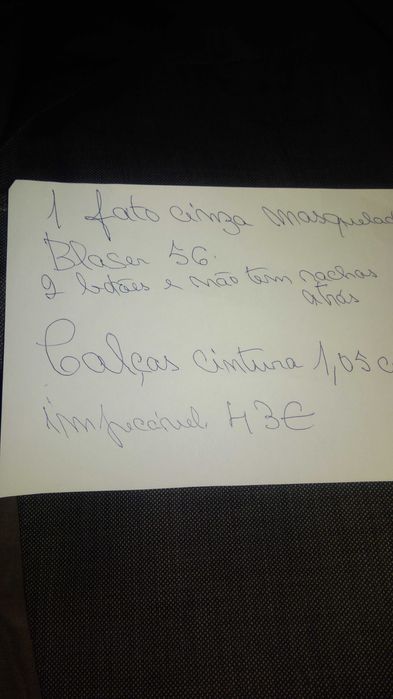 1 fato cinza masquelad
Blaser 56
2 botões e não tem rachas
atrás
Calças cintura 1,05 c
impecável 43€